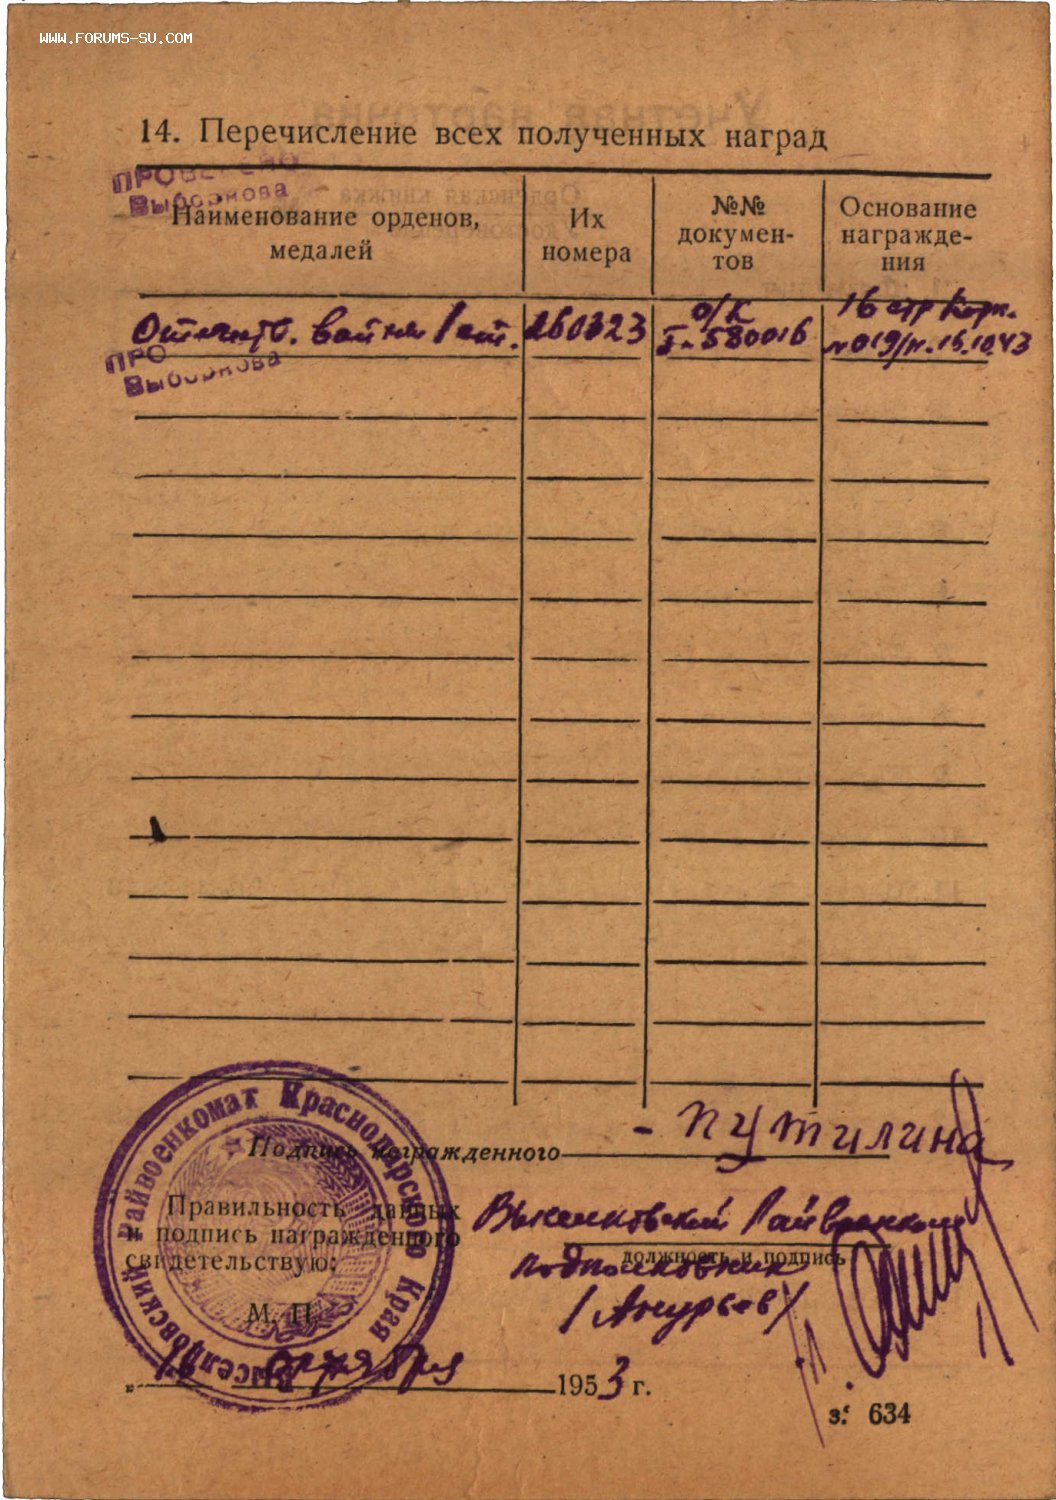 WWW.FORUMS-SU.COM
14. Перечисление всех полученных наград
ПРОВЕРЕНО
Выборнова
Наименование орденов, медалей
Их номера
№№ докумен-
тов
Основание
награжде-
ния
Отечеств. войны I ст.
260323
О/К
I-580016
16 стр Корп.
№ 019/н. 15.10.43
ПРО
Выборнова
Подпись награжденного
- Путилина
Правильность данных
и подпись награжденного
свидетельствую:
М. П.
Выселковский Райвоенком
должность и подпись
подполковник
Выселковский Райвоенкомат Краснодарского Края
октября 1953 г.
з. 634